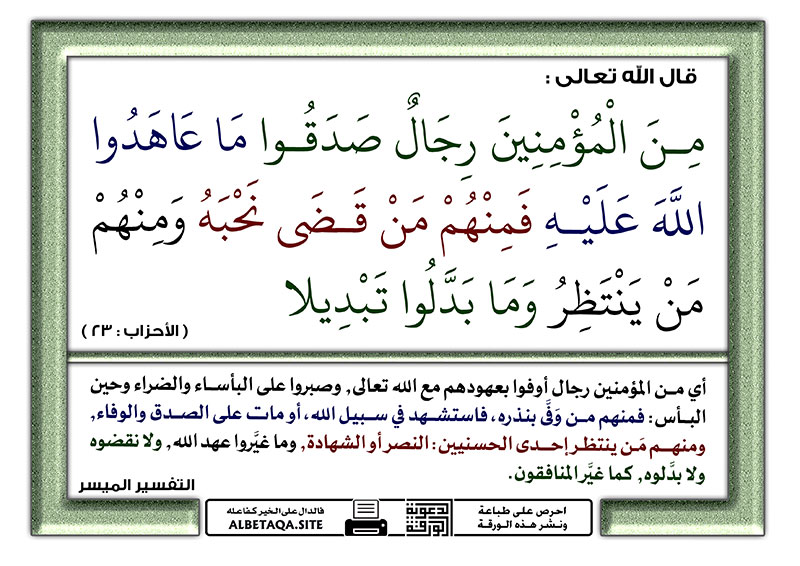 قال الله تعالى :
مِـنَ الْمُؤْمِنِينَ رِجَالٌ صَدَقُـوا مَا عَاهَدُوا
اللَّهَ عَلَيْـهِ فَمِنْهُمْ مَنْ قَـضَى نَحْبَهُ وَمِنْهُمْ
مَنْ يَنْتَظِرُ وَمَا بَدَّلُوا تَبْدِيلا
( الأحزاب : ٢٣ )
أي مـن المؤمنين رجال أوفوا بعهودهم مع الله تعالى, وصبروا على البأساء والضراء وحين
البـأس: فمنهم مـن وَفَّى بنذره، فاستشهد في سبيل الله، أو مات على الصدق والوفاء,
ومنهـم مَـن ينتظر إحدى الحسنيين: النصر أو الشهادة, وما غيَّروا عهد الله, ولا نقضوه
ولا بدَّلوه, كما غيَّر المنافقون.
التفسير الميسر
احرص على طباعة
ونشر هذه الورقة
الورقة
الدعوية
فالدال على الخير كفاعله
ALBETAQA.SITE